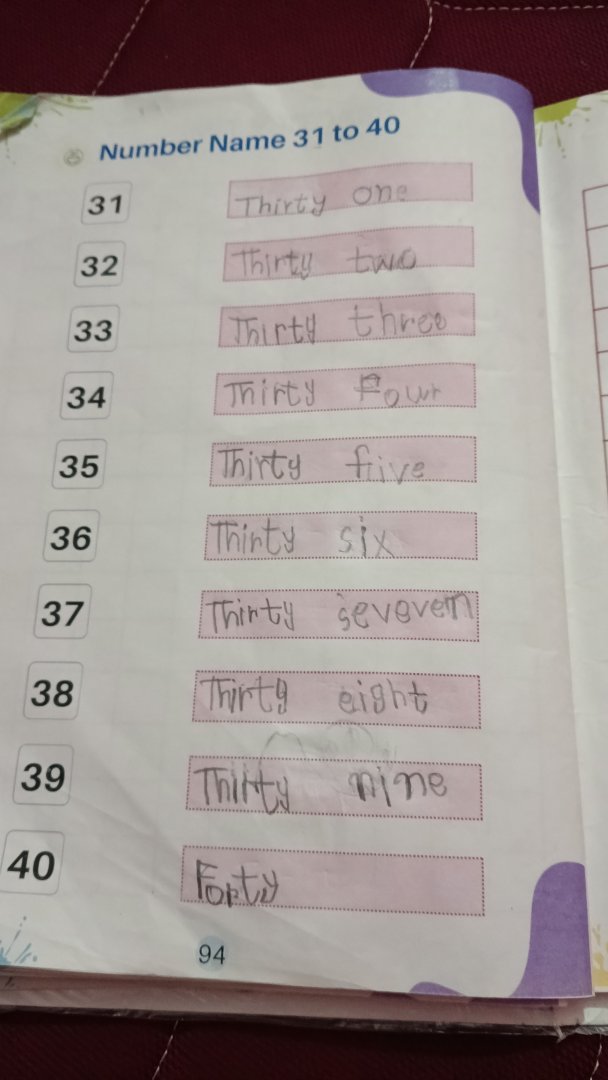 Number Name 31 to 40
31 Thirty one
32 Thirty two
33 Thirty three
34 Thirty Four
35 Thirty five
36 Thirty six
37 Thirty sevevem
38 Thirty eight
39 Thirty nine
40 Forty
94